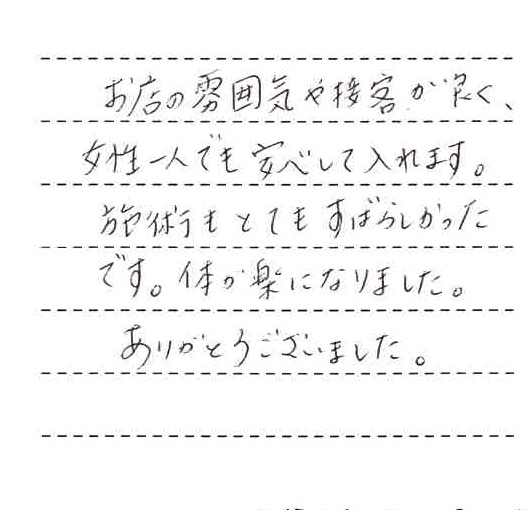 お店の雰囲気や接客が良く、
女性一人でも安心して入れます。
施術もとてもすばらしかった
です。体が楽になりました。
ありがとうございました。